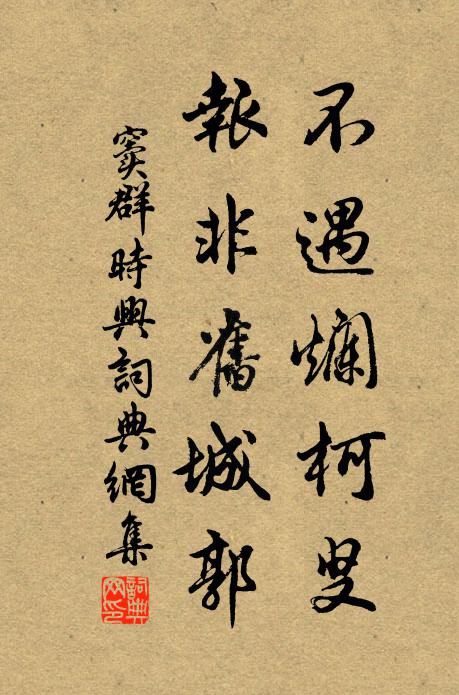 不遇爛柯叟
報非舊城郭
竇群時興詞典網集
詞典網印